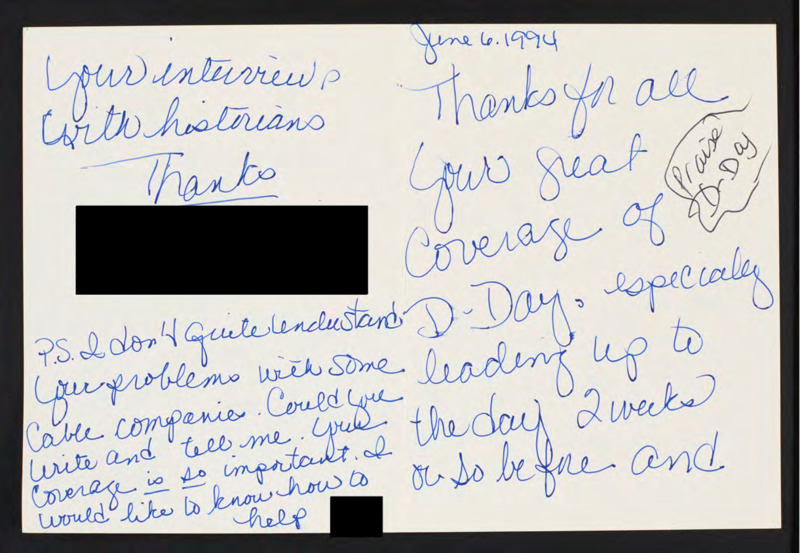 June 6. 1994
Thanks for all
Your great
Coverage of
D-Day, especially
leading up to
the day 2 weeks
or so before and
Praise
D-Day
Your interviews
with historians
Thanks
P.S. I don't quite understand
Your problems with some
Cable companies. Could you
write and tell me. Your
Coverage is so important. I
would like to know how to
help